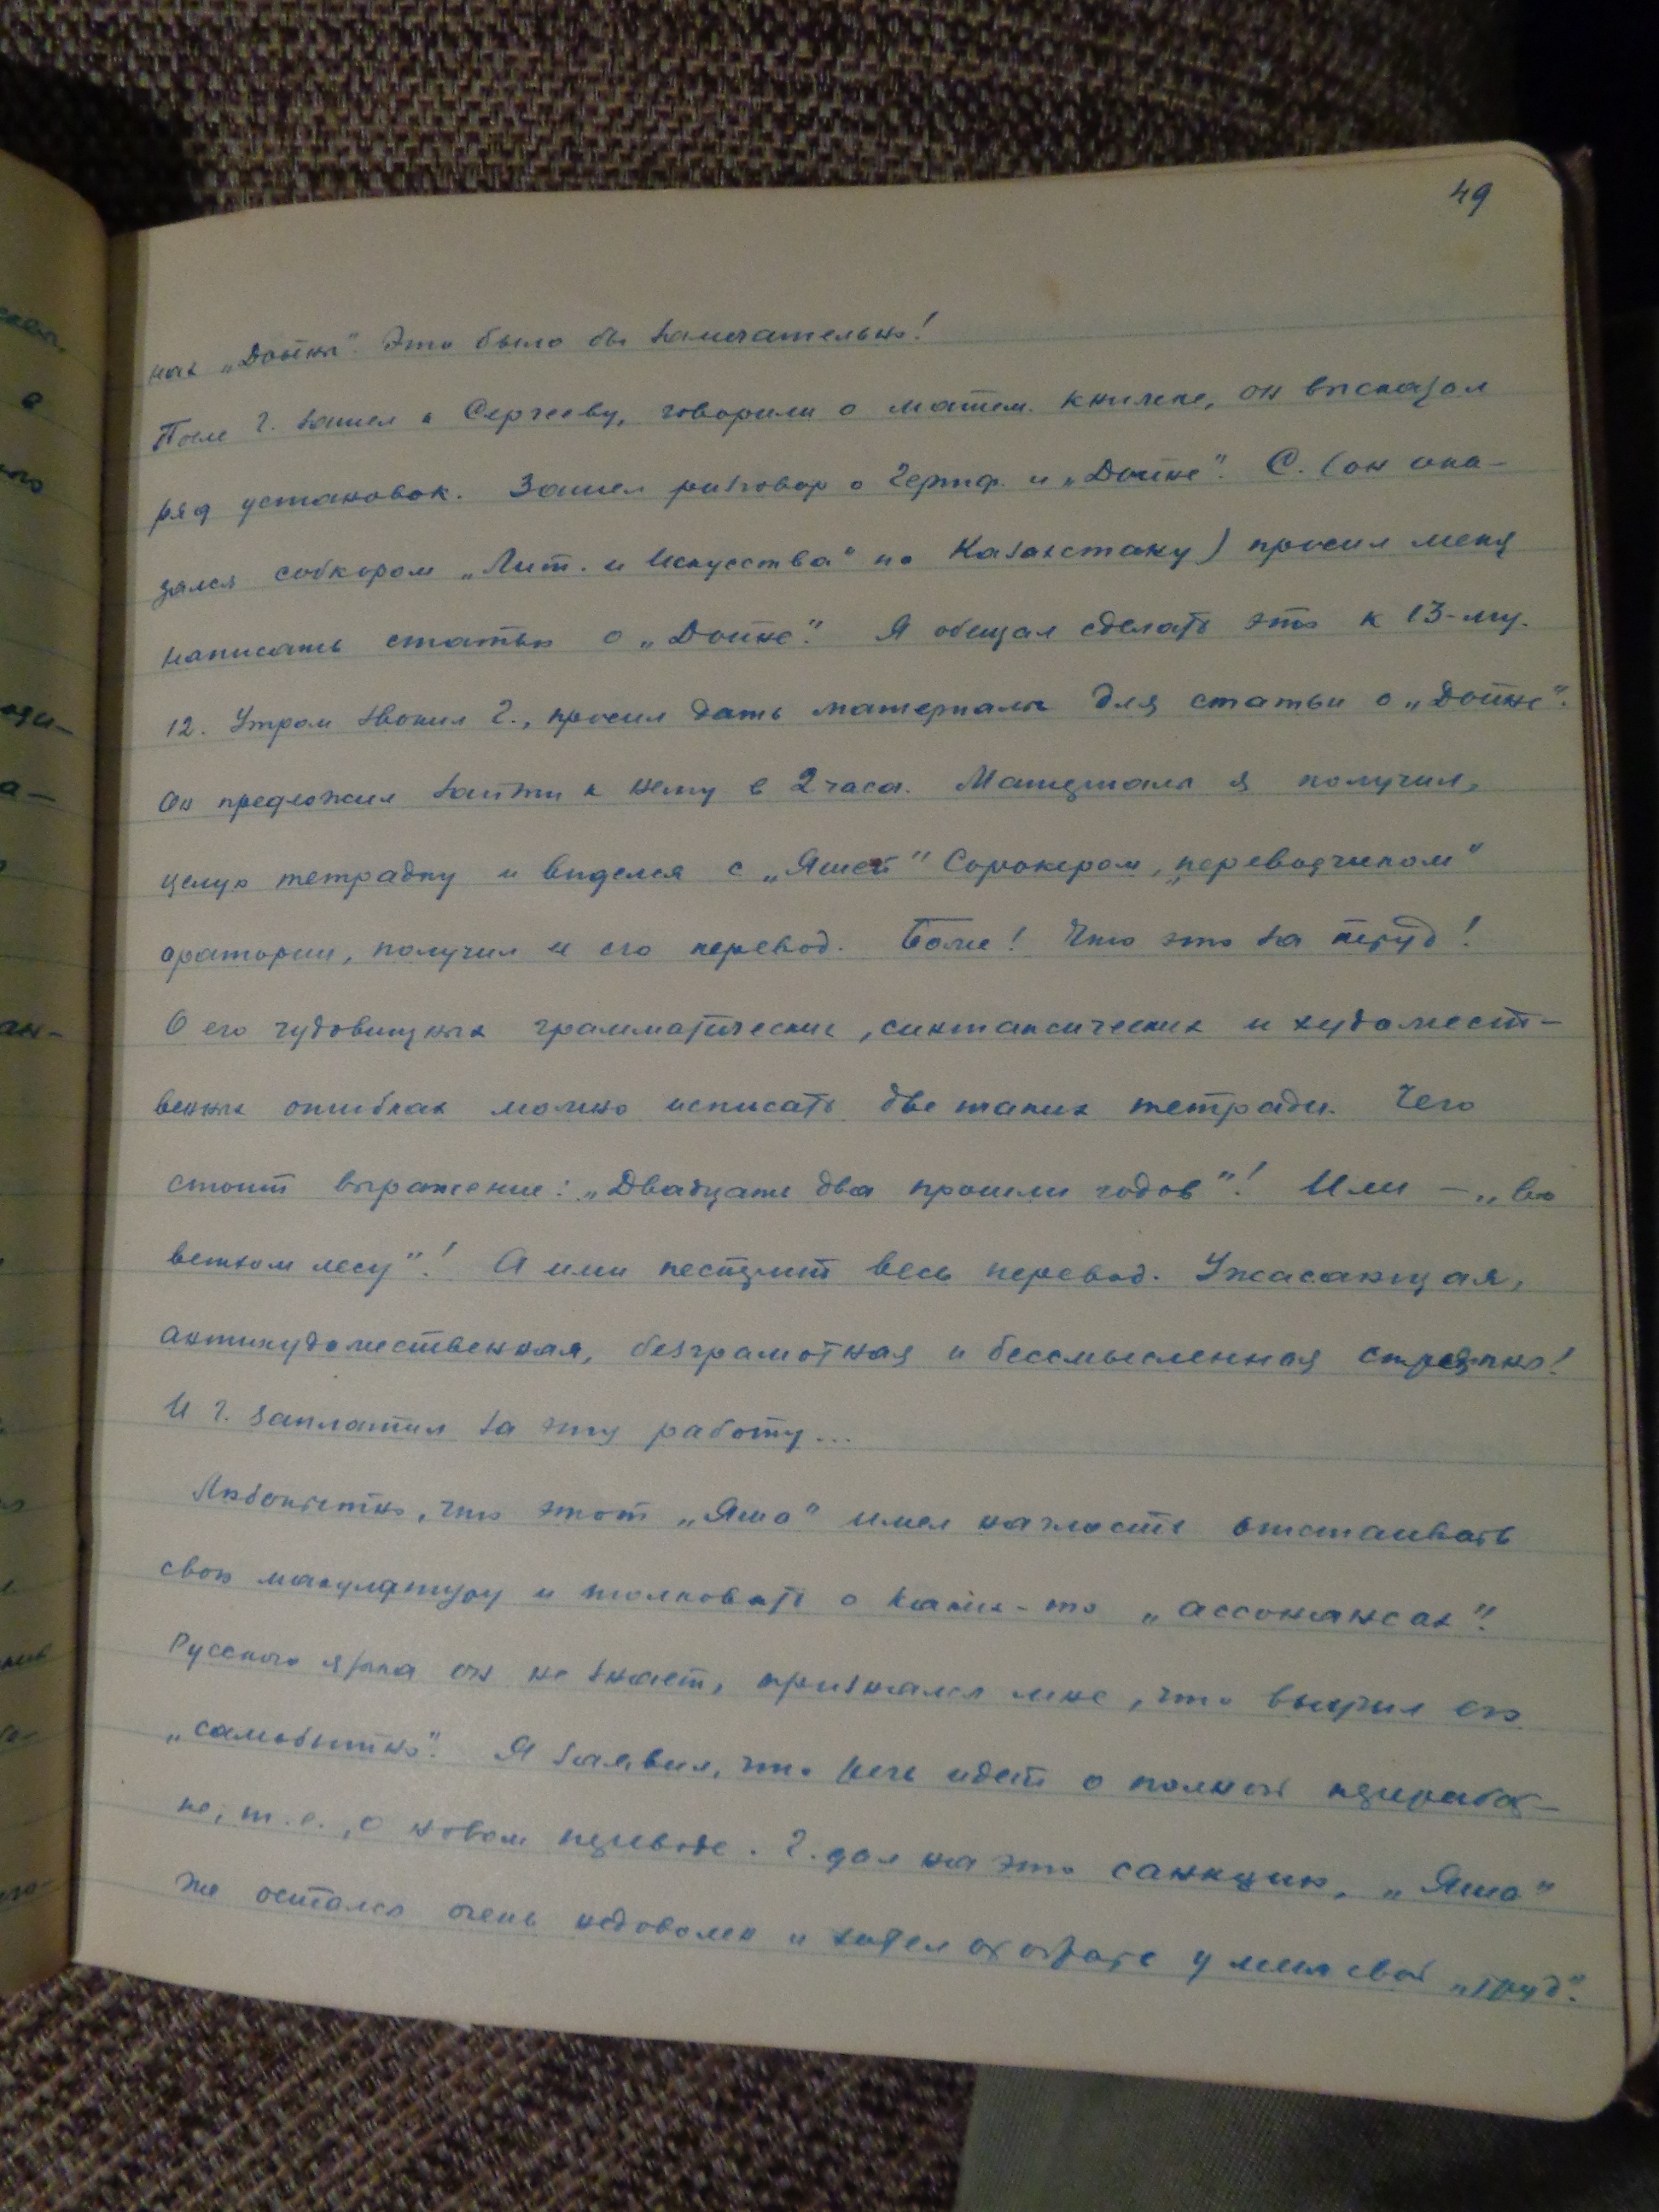 49
ная „Дойна". Это было бы замечательно!
После Г. зашел к Сергееву, говорили о матем. книжке, он высказал
ряд установок. Зашел разговор о Герцф. и „Дойне". С. (он ока-
зался собкором „Лит. и Искусства" по Казахстану) просил меня
написать статью о „Дойне". Я обещал сделать это к 13-му.
12. Утром звонил Г., просил дать материалы для статьи о „Дойне".
Он предложил зайти к нему в 2 часа. Материалы я получил,
целую тетрадку и виделся с „Яшей" Сорокером, „переводчиком"
оратории, получил и его перевод. Боже! Что это за труд!
О его чудовищных грамматических, синтаксических и художест-
венных ошибках можно исписать две таких тетради. Чего
стоит выражение: „Двадцать два прошли годов"! Или – „во
ветхом лесу"! А ими пестрит весь перевод. Ужасающая,
антихудожественная, безграмотная и бессмысленная стряпня!
И Г. заплатил за эту работу...
Любопытно, что этот „Яша" имел наглость отстаивать
свою макулатуру и толковать о каких-то „ассонансах".
Русского языка он не знает, признался мне, что выучил его
„самобытно". Я заявил, что речь идет о полной переработ-
ке, т.е., о новом переводе. Г. дал на это санкцию, „Яша"
же остался очень недоволен и хотел отобрать у меня свой „труд".